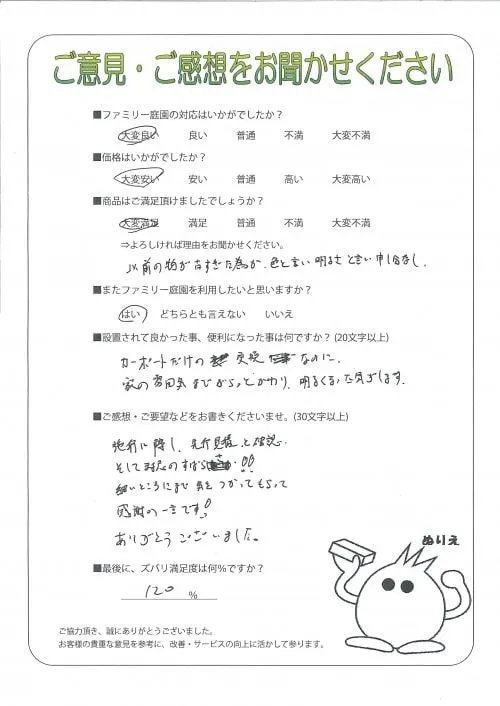 ご意見・ご感想をお聞かせください
■ファミリー庭園の対応はいかがでしたか?
大変良い 良い 普通 不満 大変不満
■価格はいかがでしたか?
大変安い 安い 普通 高い 大変高い
■商品はご満足頂けましたでしょうか?
大変満足 満足 普通 不満 大変不満
⇒よろしければ理由をお聞かせください。
以前の物が古すぎた為か、色と言い明るさと言い申し分なし。
■またファミリー庭園を利用したいと思いますか?
はい どちらとも言えない いいえ
■設置されて良かった事、便利になった事は何ですか? (20文字以上)
カーポートだけの 交換 なのに、
家の雰囲気までがらっとかわり、明るくなった気がします。
■ご感想・ご要望などをお書きくださいませ。(30文字以上)
施行に際し、先行見積と確認、
そして対応のすばらしさ!!
細いところにまで気をつかってもらって
感謝の一言です!
ありがとうございました。
■最後に、ズバリ満足度は何%ですか?
120 %
ぬりえ
ご協力頂き、誠にありがとうございました。
お客様の貴重な意見を参考に、改善・サービスの向上に活かして参ります。